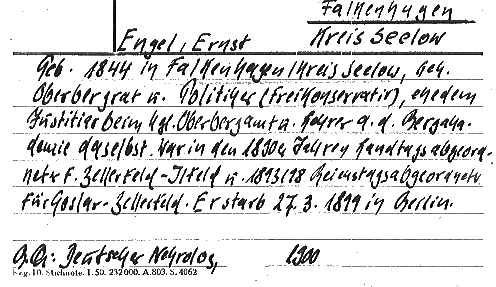 Falkenhagen
Engel, Ernst Kreis Seelow
Geb. 1844 in Falkenhagen/Kreis Seelow, Geh.
Oberbergrat u. Politiker (Freikonservativ), ehedem
Justitiar beim kgl. Oberbergamt u. Lehrer a. d. Bergaka-
demie daselbst. War in den 1890er Jahren Landtagsabgeord-
neter f. Zellerfeld-Ilfeld u. 1893/98 Reichstagsabgeordneter
für Goslar-Zellerfeld. Er starb 27. 3. 1899 in Berlin.
Deutscher Nekrolog, 1900
Reg. 10. Stichnote. I. 50. 232000. A. 803. S. 4062